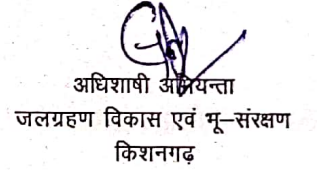 अधिशाषी अभियन्ता
जलग्रहण विकास एवं भू–संरक्षण
किशनगढ़